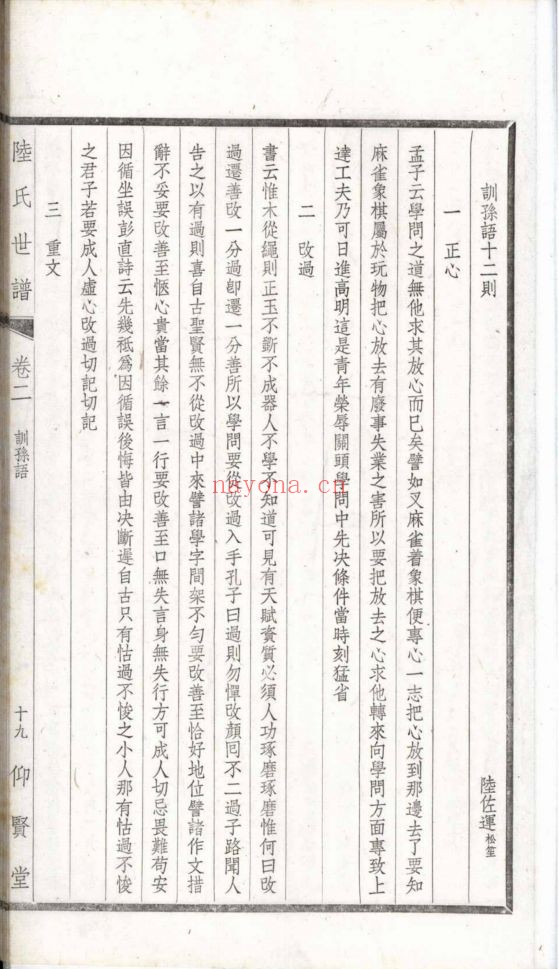 訓孫語十二則
陸佐運松笙
一 正心
孟子云學問之道無他求其放心而已矣譬如叉麻雀着象棋便專心一志把心放到那邊去了要知
麻雀象棋屬於玩物把心放去有廢事失業之害所以要把放去之心求他轉來向學問方面專致上
達工夫乃可日進高明這是青年榮辱關頭學問中先决條件當時刻猛省
二 改過
書云惟木從繩則正玉不斵不成器人不學不知道可見有天賦資質必須人功琢磨琢磨惟何曰改
過遷善改一分過卽遷一分善所以學問要從改過入手孔子曰過則勿憚改顏囘不二過子路聞人
告之以有過則喜自古聖賢無不從改過中來譬諸學字間架不勻要改善至恰好地位譬諸作文措
辭不妥要改善至愜心貴當其餘一言一行要改善至口無失言身無失行方可成人切忌畏難苟安
因循坐誤彭直詩云先幾祗爲因循誤後悔皆由决斷遲自古只有怙過不悛之小人那有怙過不悛
之君子若要成人虛心改過切記切記
三 重文
陸氏世譜
卷二
訓孫語
十九
仰賢堂
nayona.cn